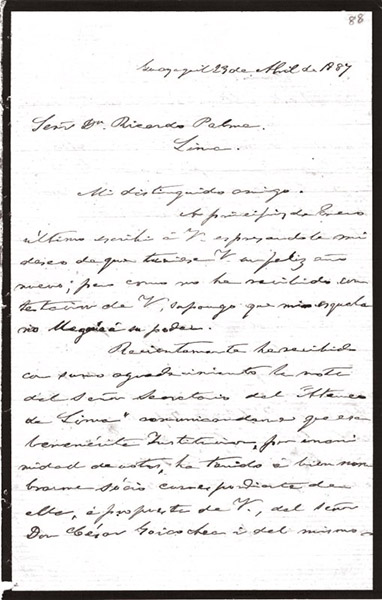 88
Guayaquil 23 de Abril de 1887
Señor Dn. Ricardo Palma.
Lima.
Mi distinguido amigo.
A principios de Enero
último escribí á V. espresandole mi
deseo de que tuviese V. un feliz año
nuevo; pero como no he recibido con
testacion de V, supongo que mi esquela
no llegaría á su poder.
Recientemente he recibido
con sumo agradecimiento la nota
del Señor Secretario del "Ateneo
de Lima" comunicandome que ese
benemérito Instituto, por unani
midad de votos, ha tenido á bien nom
brarme sócio correspondiente de
el, á propuesta de V., del señor
Don César Goicochea i del mismo